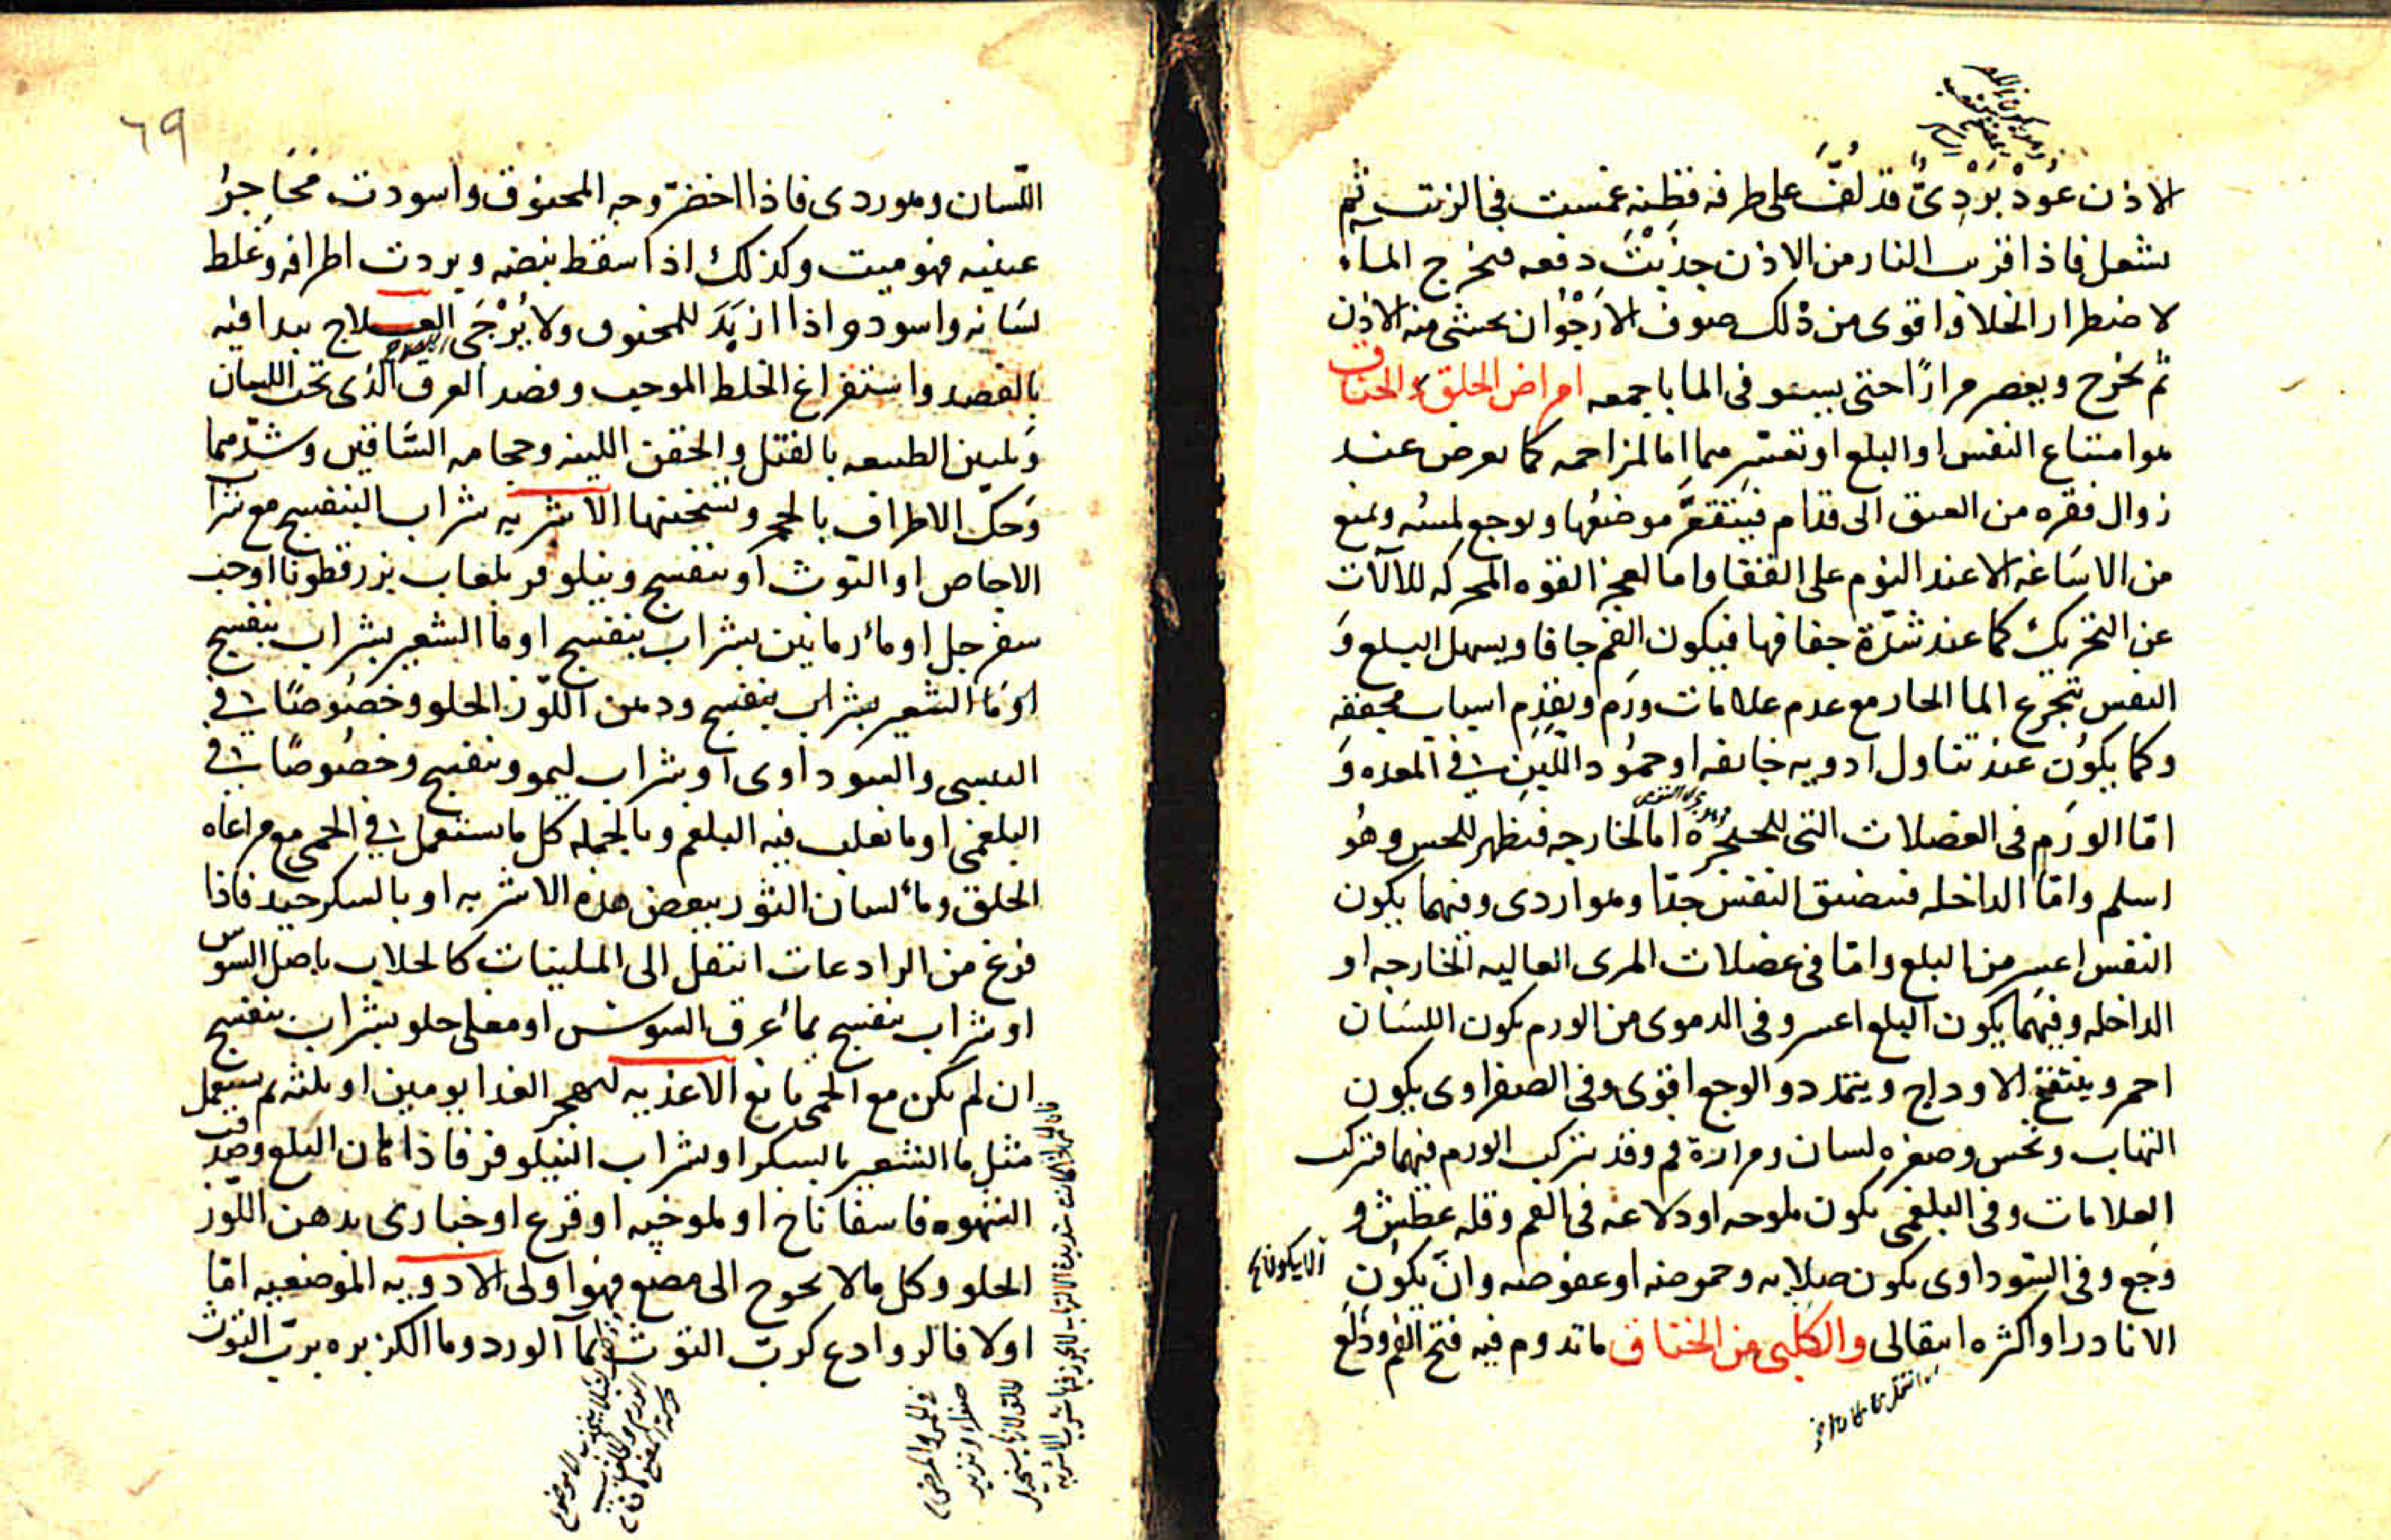 الاذن عُودْ بَرْدِىّ قد لُفَّ على طرفه قطنه غمست فى الزيت ثم
يشعل فاذا اقرب النار من الاذن جذبت دفعه فيخرج الماء
لاضطرار الخلا واقوى من ذلك صوف الارجوان يحشى منه الاذن
ثم يخرج ويعصر مرارًا حتى يستوفى الما باجمعه امراض الحلق والخناق
هو امتناع النفس او البلع او تعسرهما اما لمزاحمه كما يعرض عند
زوال فقره من العنق الى قدام فيتقعر موضعها ويوجع لمسه ويمنع
من الاساغه الا عند النوم على القفا واما لعجز القوه المحركه للالات
عن التحريك كما عند شدّة جفافها فيكون الفم جافا ويسهل البلع وَ
النفس بتجرع الما الحار مع عدم علامات ورم وتقدم اسباب مجففه
وكما يكون عند تناول ادويه خانقه او جمُود اللَّبن فى المعده وَ
امّا الورم فى العضلات التى للحنجره اما الخارجه فيظهر للحس وهُو
اسلم وامّا الداخله فيضيق النفس جدّا وهو اردى وفيهما يكون
النفس اعسر من البلع وامّا فى عضلات المرى العاليه الخارجه او
الداخله وفيهما يكون البلع اعسر وفى الدموى من الورم يكون اللسَان
احمر وينتفخ الاوداج ويتمدد والوجع اقوى وفى الصفراوى يكون
التهاب ونخس وصفره لسان ومرارة فم وقد يتركب الورم فيهما فتركب
العلامات وفى البلغمى يكون ملوحه او دلاعه فى الفم وقله عطش و
وَجع وفى السّوداوى يكون صلابه وحموضه او عفوصه وانْ يكون
الا نادرا واكثره انتقالى والكَلْبى من الخناق ما تدوم فيه فتح الفم ودلع
٦٩
اللّسان وهو ردى فاذا اخضرّ وجه المخنوق واسودت محَاجرُ
عينيه فهو ميت وكذلك اذا سقط نبضه وبردت اطرافه وغلظ
لسَانه واسود واذا ازبَدَ للمخنوق ولا يُرْجَى العلاج يبدا فيه
بالفصد واستفراغ الخلط الموجب وفصد العرق الذى تحت اللسان
وتليين الطبيعه بالفتل والحقن اللينه وحجامه السَّاقين وشدّهما
وَحكّ الاطراف بالحجر وتسخينها الاشربه شراب البنفسج مع شرا
الاجاص او التوث او بنفسج ونيلوفر بلعاب بزرقطونا او حب
سفرجل او مآ رمانين بشراب بنفسج او ما الشعير بشراب بنفسج
او مَا الشعير بشراب بنفسج ودهن اللّوز الحلو وخصُوصًا فى
اليبسى والسوداوى او شراب ليمو وبنفسج وخصُوصًا فى
البلغمى او ما تغلب فيه البلغم وبالجمله كل ما يستعمل فى الحمى مع مراعاه
الحلق وماء لسان الثور ببعض هذه الاشربه او بالسكر جيد فاذا
فرغ من الرادعات انتقل الى الملينات كالجلاب باصل السوس
او شراب بنفسج بماء عرق السوس او مغلى حلو بشراب بنفسج
ان لم يكن مع الحمى مانع الاغذيه ليهجر الغدا يومين او ثلثه ثم يستعمل
مثل ما الشعير بالسكر او شراب النيلوفر فاذا امكن البلع وصدقت
الشهوه فاسفاناخ او ملوخيه او قرع او خبازى بدهن اللّوز
الحلو وكل ما لا يحوج الى مضغ فهو اولى الادويه الموضعيه امّا
اولا فالروادع كرب التوث بمآ الورد وما الكزبره برب التوث